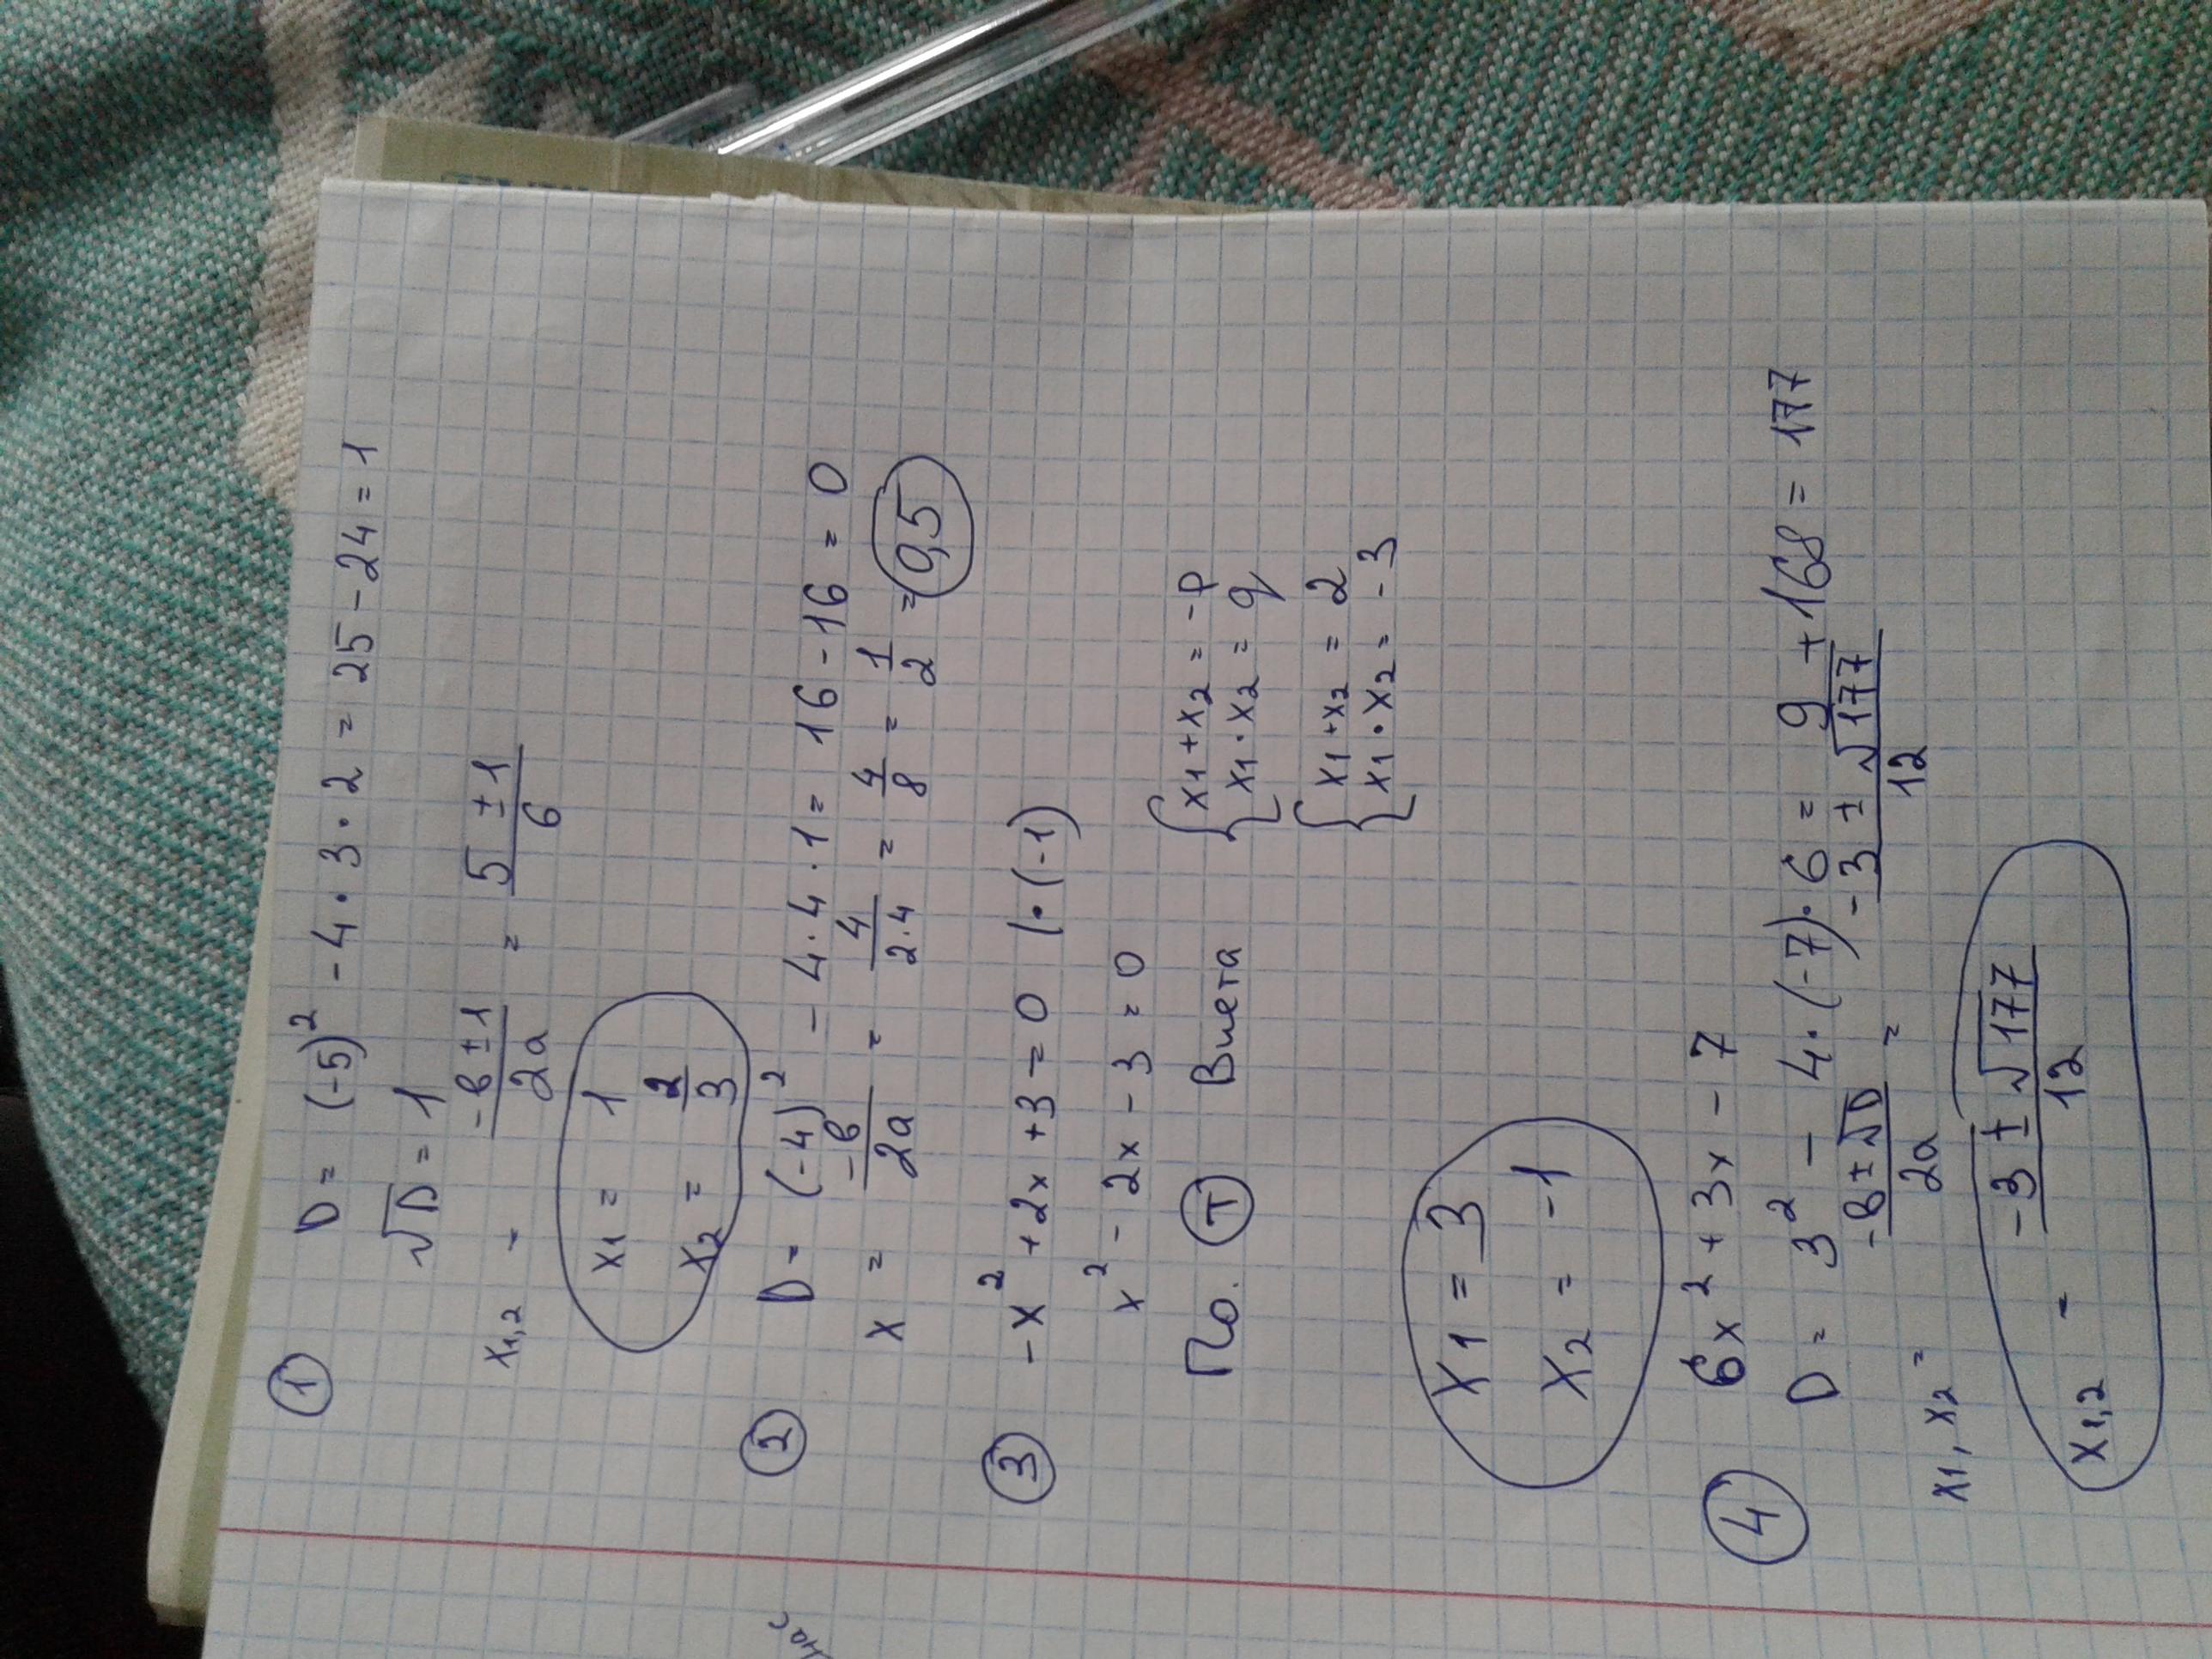 ① D = (-5)² - 4 · 3 · 2 = 25 - 24 = 1
√D = 1
x₁,₂ = (-в ± 1)/(2a) = (5 ± 1)/6
x₁ = 1
x₂ = 2/3
② D = (-4)² - 4 · 4 · 1 = 16 - 16 = 0
x = -в/(2a) = 4/(2·4) = 4/8 = 1/2 = 0,5
③ -x² + 2x + 3 = 0 | · (-1)
x² - 2x - 3 = 0
По. Ⓣ Виета
{ x₁ + x₂ = -p
x₁ · x₂ = q
{ x₁ + x₂ = 2
x₁ · x₂ = -3
x₁ = 3
x₂ = -1
④ 6x² + 3x - 7
D = 3² - 4 · (-7) · 6 = 9 + 168 = 177
x₁, x₂ = (-в ± √D)/(2a) = (-3 ± √177)/12
x₁,₂ = (-3 ± √177)/12